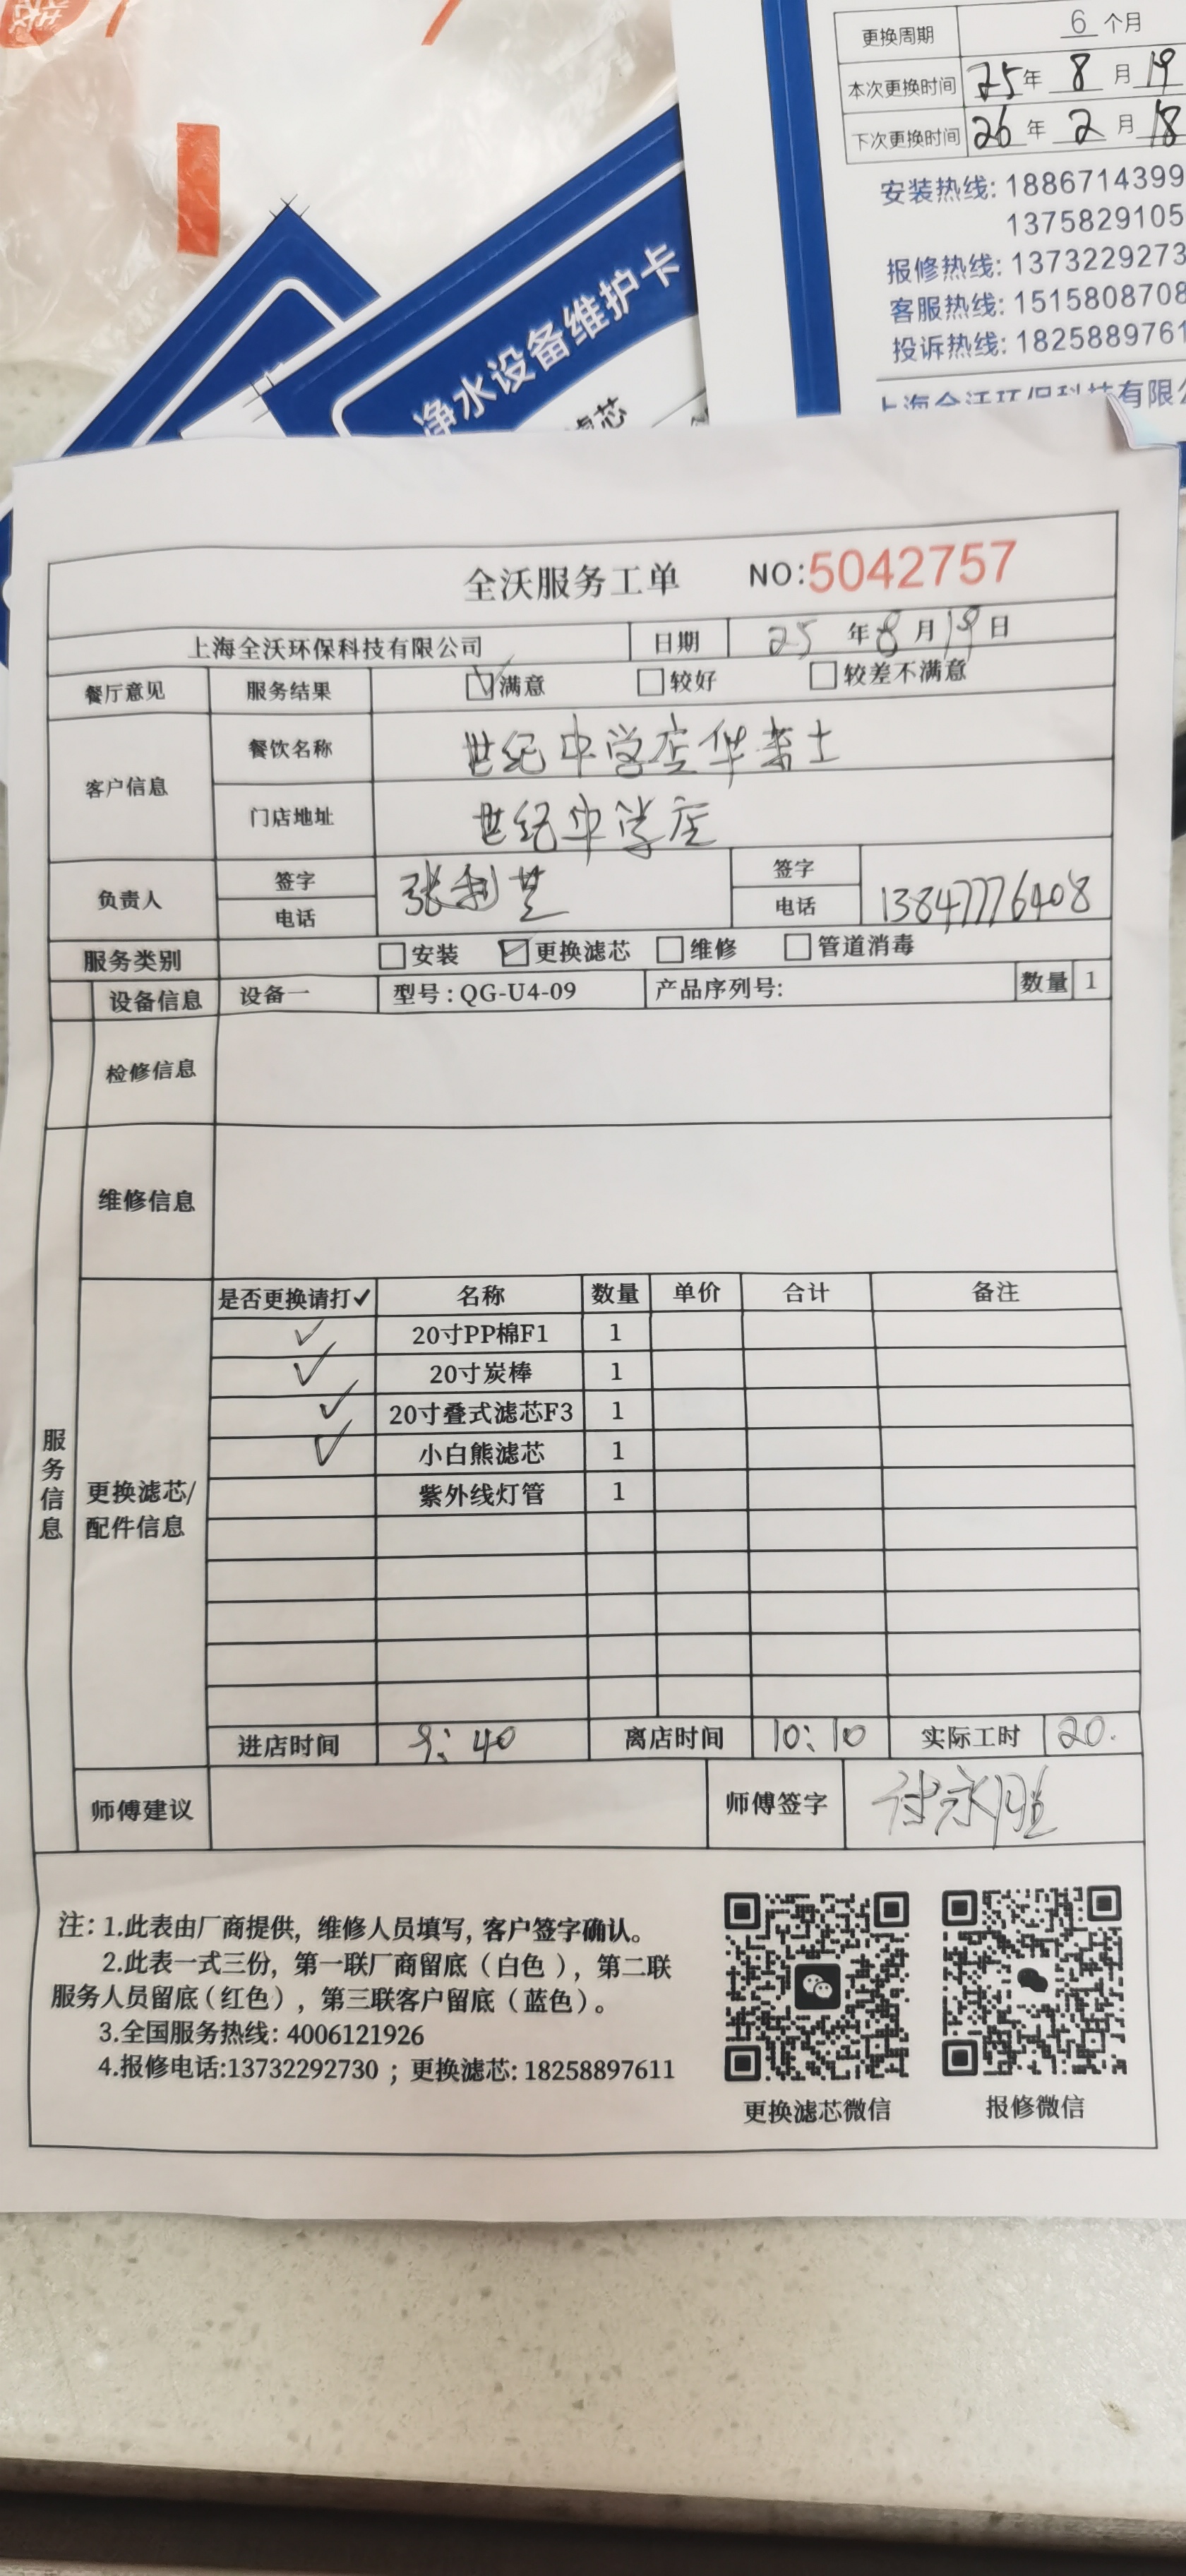 更换周期 6 个月
本次更换时间 25年 8 月 19
下次更换时间 26年 2 月 18
安装热线: 1886714399
1375829105
报修热线: 1373229273
客服热线: 1515808708
投诉热线: 1825889761
上海全沃环保科技有限公
净水设备维护卡
滤芯
全沃服务工单 NO:5042757
上海全沃环保科技有限公司 日期 25 年 8 月 19 日
餐厅意见 服务结果 满意 较好 较差不满意
客户信息 餐饮名称 世纪中学店华莱士
门店地址 世纪中学店
负责人 签字 张利芝 签字
电话 电话 13847776408
服务类别 安装 更换滤芯 维修 管道消毒
设备信息 设备一 型号: QG-U4-09 产品序列号: 数量 1
检修信息
维修信息
服务信息
更换滤芯/配件信息
是否更换请打✓ 名称 数量 单价 合计 备注
✓ 20寸PP棉F1 1
✓ 20寸炭棒 1
✓ 20寸叠式滤芯F3 1
✓ 小白熊滤芯 1
紫外线灯管 1
进店时间 9:40 离店时间 10:10 实际工时 20.
师傅建议 师傅签字 付永胜
注: 1.此表由厂商提供, 维修人员填写, 客户签字确认。
2.此表一式三份, 第一联厂商留底 (白色), 第二联
服务人员留底 (红色), 第三联客户留底 (蓝色)。
3.全国服务热线: 4006121926
4.报修电话:13732292730 ; 更换滤芯: 18258897611
更换滤芯微信 报修微信